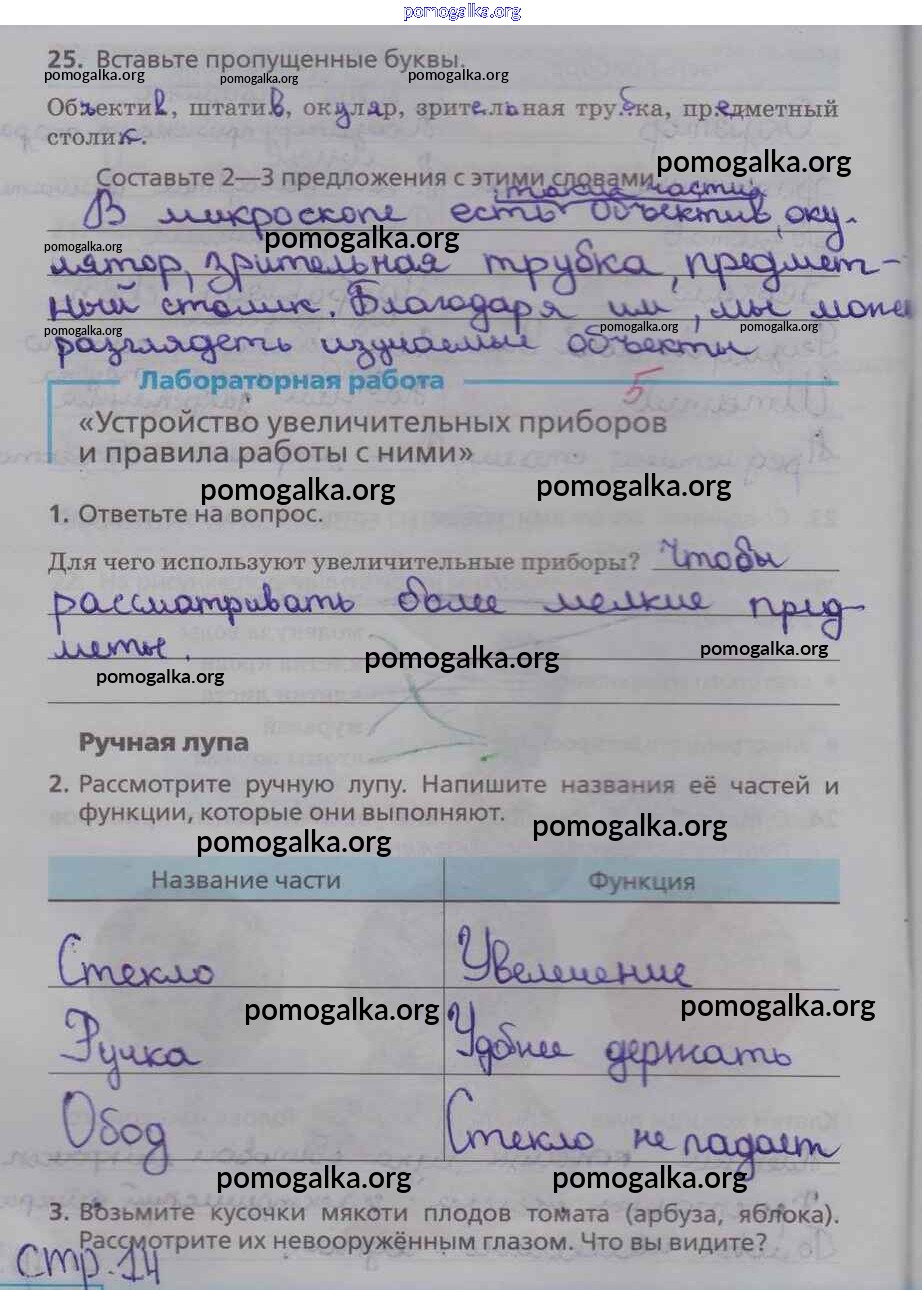 pomogalka.org
25. Вставьте пропущенные буквы.
pomogalka.org pomogalka.org pomogalka.org
Объектив, штатив, окуляр, зрительная трубка, предметный
столик.
pomogalka.org
Составьте 2—3 предложения с этими словами.
такие части:
В микроскопе есть объектив, оку-
pomogalka.org pomogalka.org
лятор, зрительная трубка, предмет-
ный столик. Благодаря им, мы може
pomogalka.org pomogalka.org pomogalka.org
разглядеть изучаемые объекты
Лабораторная работа 5
«Устройство увеличительных приборов
и правила работы с ними»
pomogalka.org pomogalka.org
1. Ответьте на вопрос.
Для чего используют увеличительные приборы? Чтобы
рассматривать более мелкие пред-
меты.
pomogalka.org pomogalka.org
pomogalka.org
Ручная лупа
2. Рассмотрите ручную лупу. Напишите названия её частей и
функции, которые они выполняют.
pomogalka.org pomogalka.org
Название части Функция
Стекло Увеличение
pomogalka.org pomogalka.org
Ручка Удобнее держать
Обод Стекло не падает
pomogalka.org pomogalka.org
3. Возьмите кусочки мякоти плодов томата (арбуза, яблока).
Рассмотрите их невооружённым глазом. Что вы видите?
стр. 14